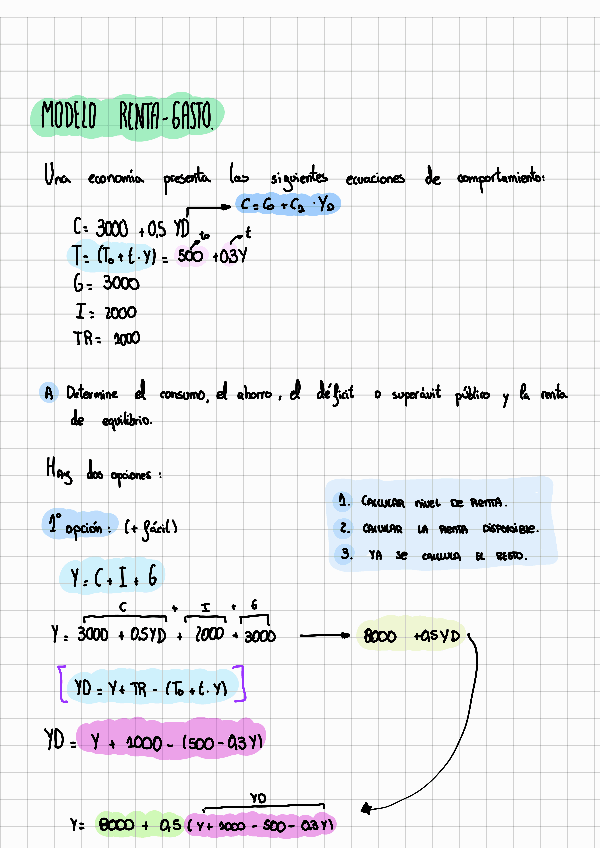 MODELO RENTA-GASTO.
Una economía presenta las siguientes ecuaciones de comportamiento:
C = C0 + C1 · YD
C = 3000 + 0,5 YD
to t
T = (To + t · Y) = 500 + 0,3Y
G = 3000
I = 2000
TR = 1000
A Determine el consumo, el ahorro, el déficit o superávit público y la renta
de equilibrio.
Hay dos opciones:
1. CALCULAR NIVEL DE RENTA.
1º opción: (+ fácil)
2. CALCULAR LA RENTA DISPONIBLE.
3. YA SE CALCULA EL RESTO.
Y = C + I + G
C + I + G
Y = 3000 + 0,5YD + 2000 + 3000 → 8000 + 0,5 YD
[YD = Y + TR - (To + t · Y)]
YD = Y + 1000 - (500 - 0,3 Y)
YD
Y = 8000 + 0,5 (Y + 1000 - 500 - 0,3 Y)